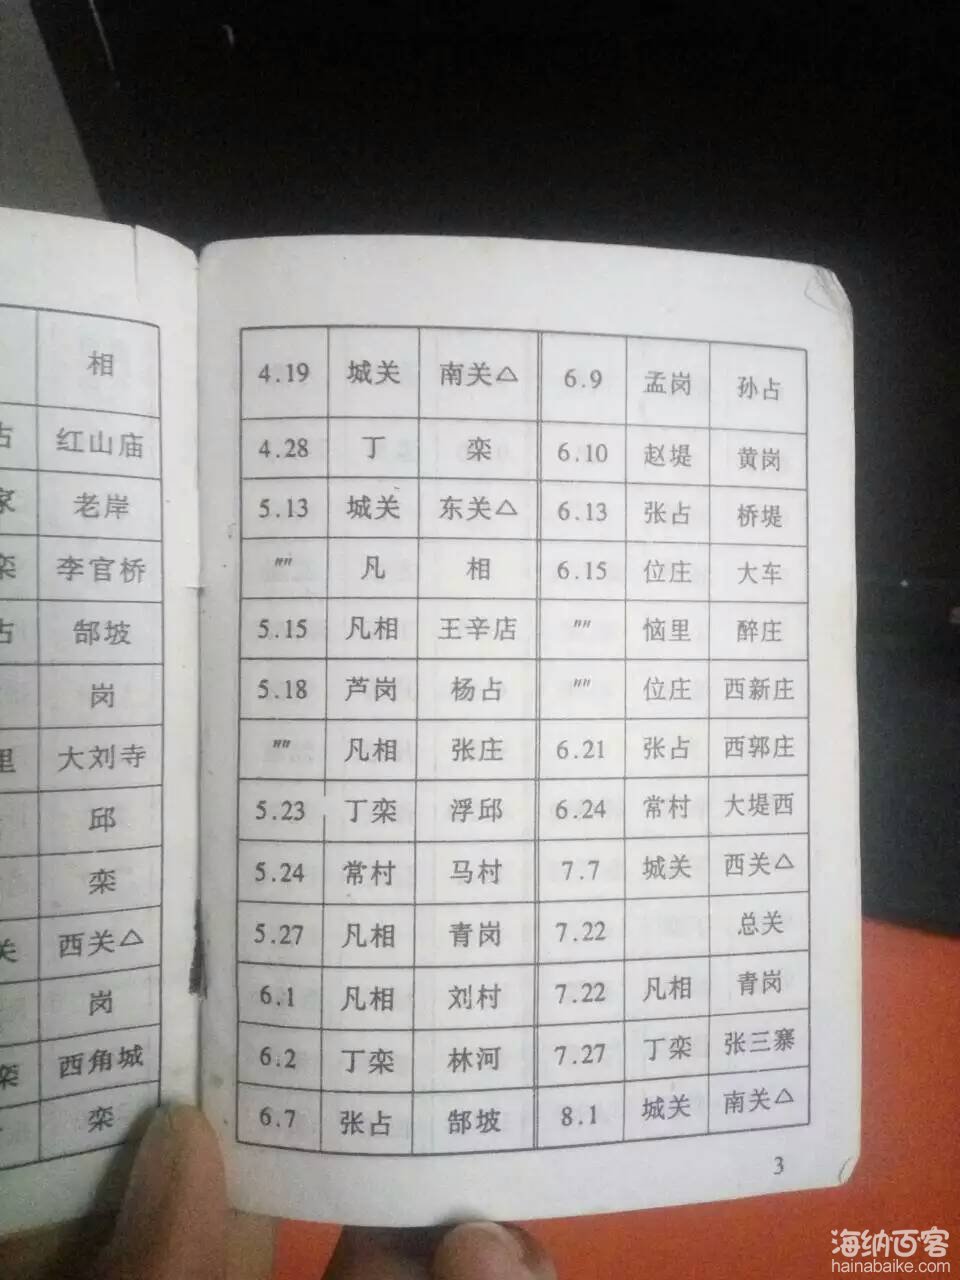 相
占 红山庙
家 老岸
栾 李官桥
占 郜坡
岗
里 大刘寺
邱
栾
关 西关△
岗
栾 西角城
栾
4.19 城关 南关△ 6.9 孟岗 孙占
4.28 丁 栾 6.10 赵堤 黄岗
5.13 城关 东关△ 6.13 张占 桥堤
"" 凡 相 6.15 位庄 大车
5.15 凡相 王辛店 "" 恼里 醉庄
5.18 芦岗 杨占 "" 位庄 西新庄
"" 凡相 张庄 6.21 张占 西郭庄
5.23 丁栾 浮邱 6.24 常村 大堤西
5.24 常村 马村 7.7 城关 西关△
5.27 凡相 青岗 7.22 总关
6.1 凡相 刘村 7.22 凡相 青岗
6.2 丁栾 林河 7.27 丁栾 张三寨
6.7 张占 郜坡 8.1 城关 南关△
3
海纳百客
hainabaike.com